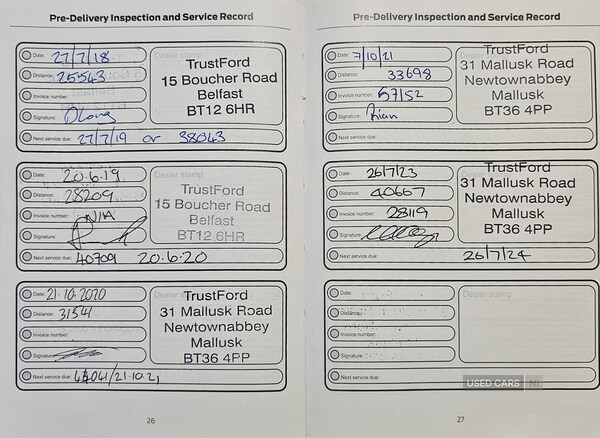 Pre-Delivery Inspection and Service Record
Date: 27/7/18
Distance: 25543
Invoice number:
Signature: DLong
Next service due: 27/7/19 or 38043
Dealer stamp
TrustFord
15 Boucher Road
Belfast
BT12 6HR
Date: 20.6.19
Distance: 28209
Invoice number: N/A
Signature:
Next service due: 40709 20.6.20
Dealer stamp
TrustFord
15 Boucher Road
Belfast
BT12 6HR
Date: 21.10.2020
Distance: 31541
Invoice number:
Signature:
Next service due: 44041/21.10.21
TrustFord
31 Mallusk Road
Newtownabbey
Mallusk
BT36 4PP
26
Pre-Delivery Inspection and Service Record
Date: 7/10/21
Distance: 33698
Invoice number: 57152
Signature:
Next service due:
TrustFord
31 Mallusk Road
Newtownabbey
Mallusk
BT36 4PP
Date: 26/7/23
Distance: 40667
Invoice number: 28119
Signature:
Next service due: 26/7/24
TrustFord
31 Mallusk Road
Newtownabbey
Mallusk
BT36 4PP
Date:
Distance:
Invoice number:
Signature:
Next service due:
Dealer stamp
USED CARS NI
27